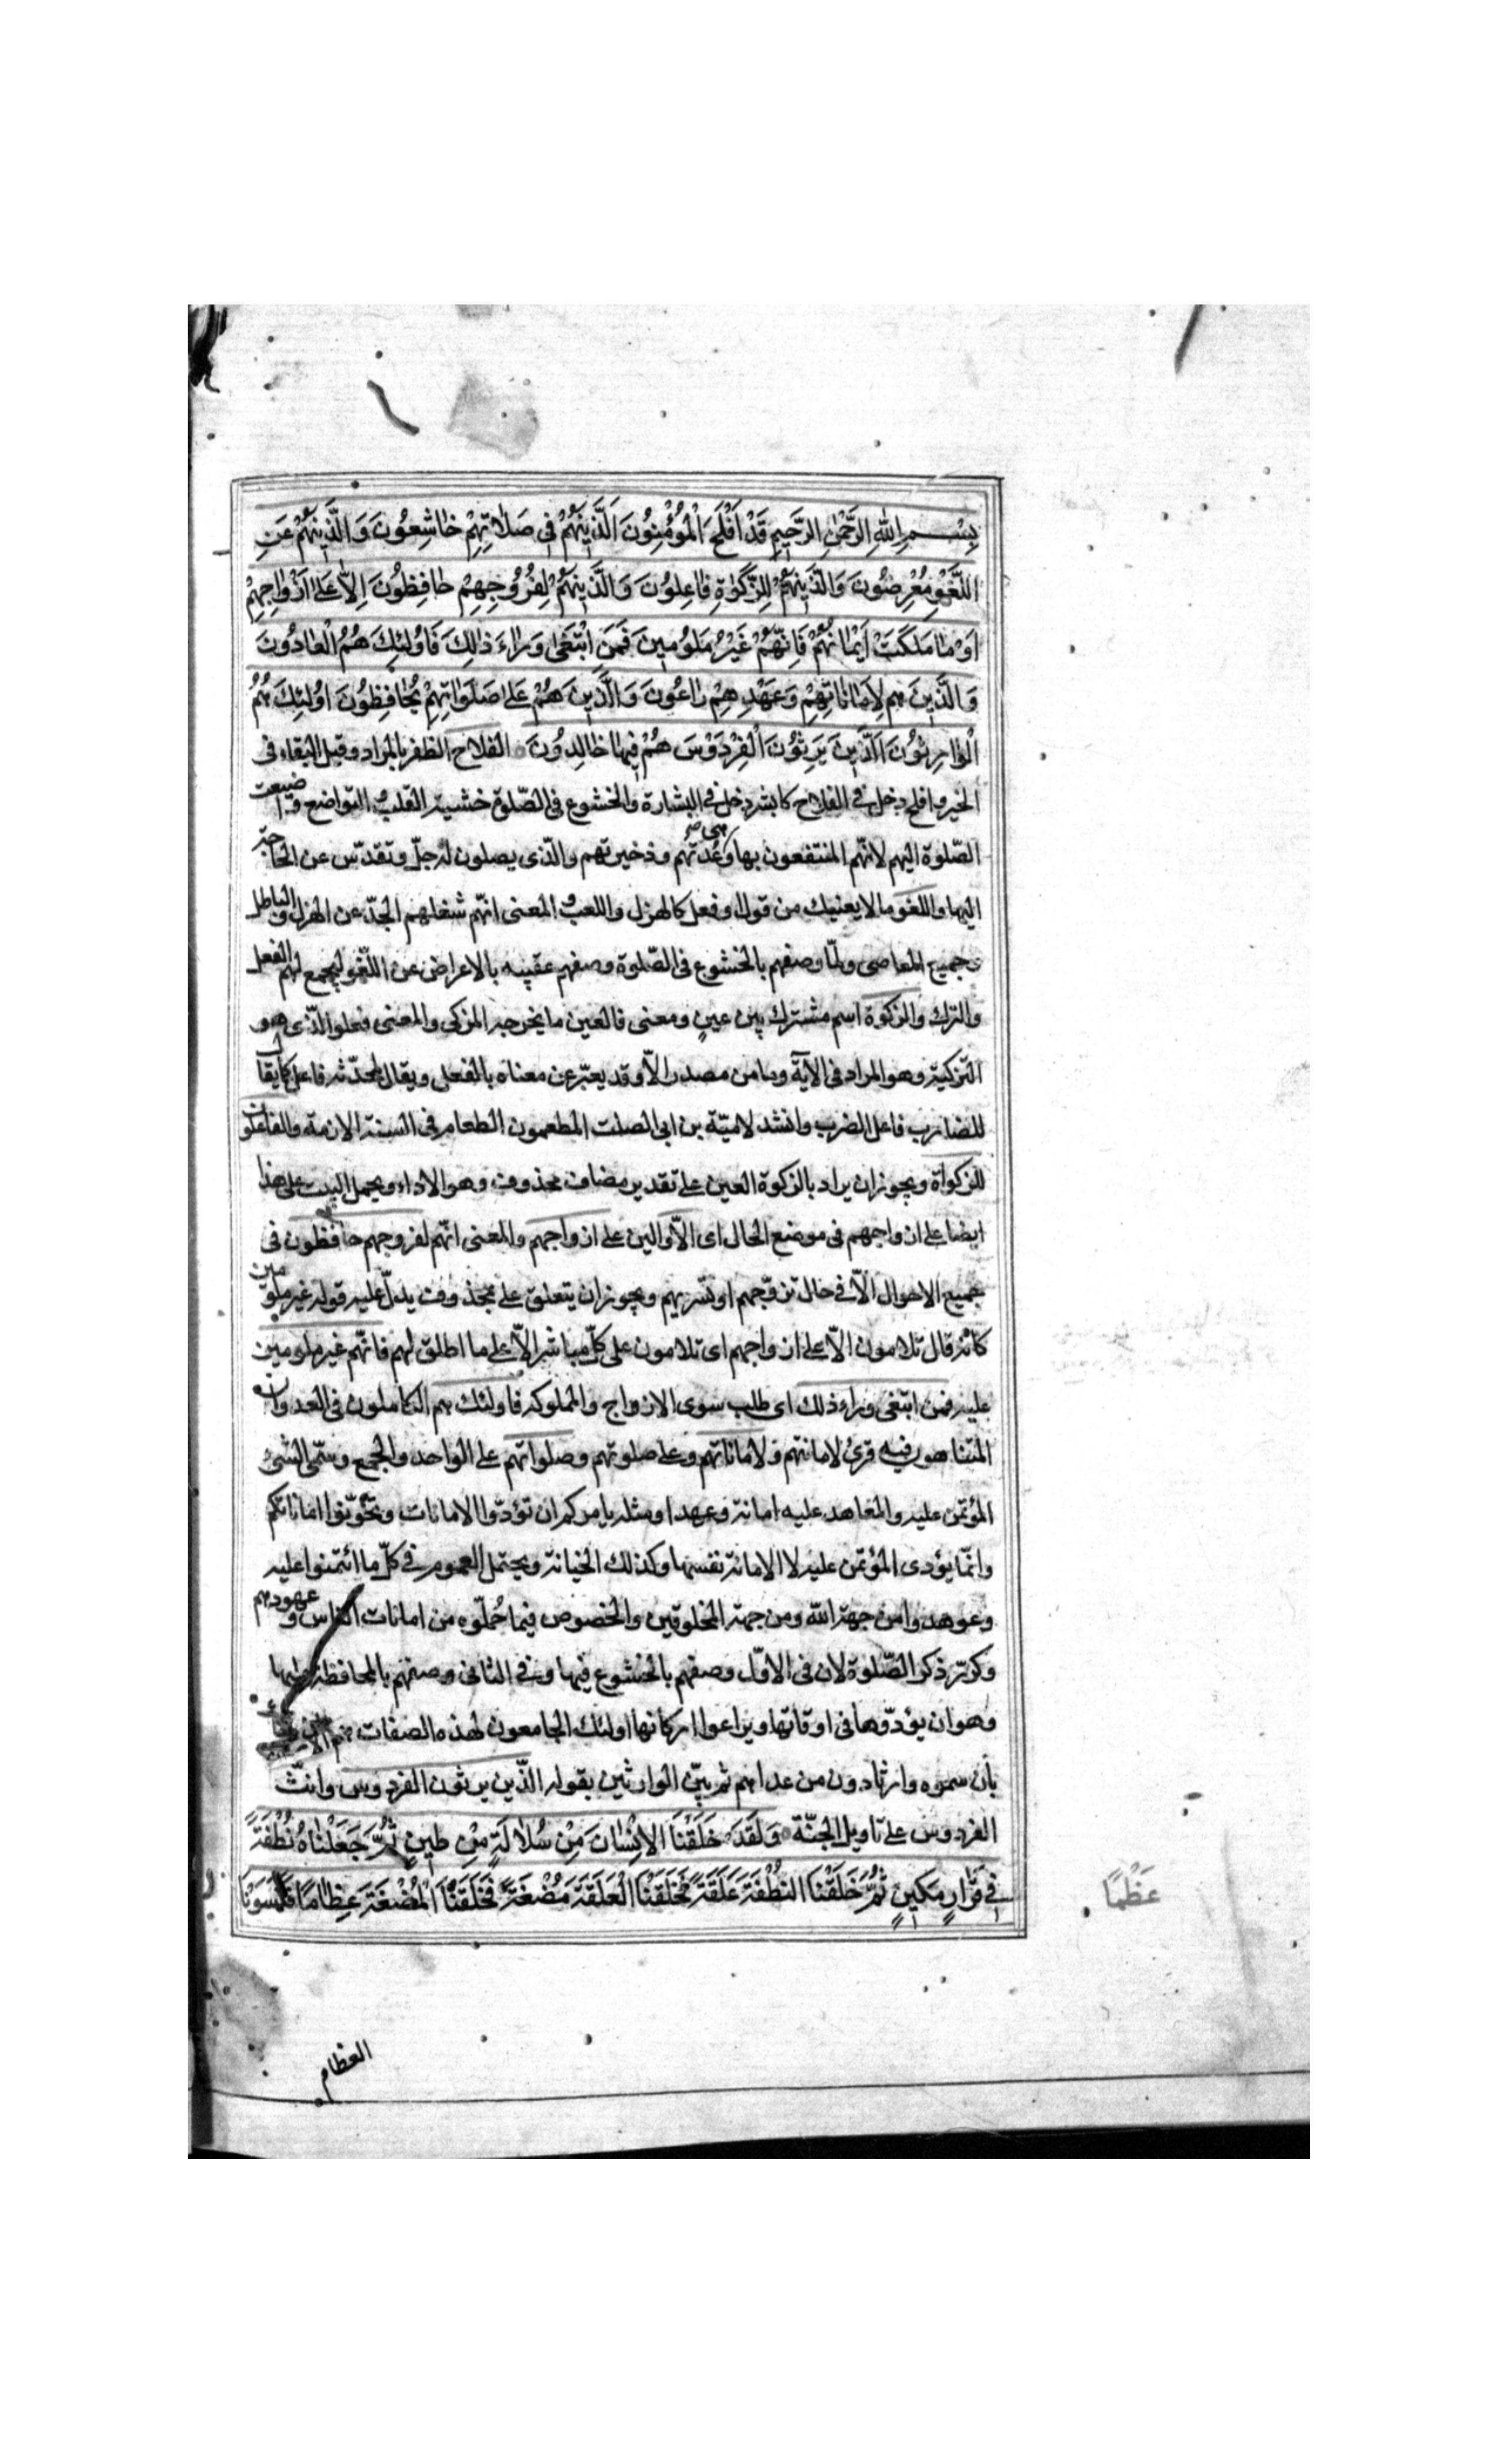 بِسْمِ اللهِ الرَّحْمٰنِ الرَّحِيمِ قَدْ اَفْلَحَ الْمُؤْمِنُونَ اَلَّذِينَ هُمْ فِى صَلَاتِهِمْ خَاشِعُونَ وَالَّذِينَ هُمْ عَنِ
اللَّغْوِ مُعْرِضُونَ وَالَّذِينَ هُمْ لِلزَّكٰوةِ فَاعِلُونَ وَالَّذِينَ هُمْ لِفُرُوجِهِمْ حَافِظُونَ اِلَّا عَلٰى اَزْوَاجِهِمْ
اَوْ مَا مَلَكَتْ اَيْمَانُهُمْ فَاِنَّهُمْ غَيْرُ مَلُومِينَ فَمَنِ ابْتَغٰى وَرَاءَ ذٰلِكَ فَاُولٰئِكَ هُمُ الْعَادُونَ
وَالَّذِينَ هم لِاَمَانَاتِهِمْ وَعَهْدِهِمْ رَاعُونَ وَالَّذِينَ هُمْ عَلٰى صَلَوَاتِهِمْ يُحَافِظُونَ اُولٰئِكَ هُمُ
الْوَارِثُونَ اَلَّذِينَ يَرِثُونَ الْفِرْدَوْسَ هُمْ فِيهَا خَالِدُونَ الفلاح الظفر بالمراد وقيل البقاء فى
الخير وافلح دخل فى الفلاح كابشر دخل فى البشارة والخشوع فى الصّلوة خشية القلب والتواضع واضيفت
الصّلوة اليهم لانّهم المنتفعون بها وهى عدّتهم وذخيرتهم والّذى يصلون له جلّ وتقدّس عن الحاجة
اليها واللغو ما لا يعنيك من قول وفعل كالهزل واللعب والمعنى انّهم شغلهم الجدّ عن الهزل والباطل
وجميع المعاصى ولمّا وصفهم بالخشوع فى الصّلوة وصفهم عقيبه بالاعراض عن اللّغو ليجمع لهم الفعل
والترك والزكوة اسم مشترك بين عينٍ ومعنى فالعين ما يخرجه المزكى والمعنى فعلو الّذى هو
التزكية وهو المراد فى الآية وما من مصدر الّا وقد يعبّر عن معناه بالفعل ويقال لمحدّثه فاعل كما يقال
للضارب فاعل الضرب وانشد لاميّة بن ابى الصلت المطعمون الطعام فى السنة الازمة والفاعلون
للزكواة ويجوز ان يراد بالزكوة العين على تقدير مضاف محذوف وهو الاداء ويحمل البيت على هذا
ايضا على ازواجهم فى موضع الحال اى الّا والين على ازواجهم والمعنى انّهم لفروجهم حافظون فى
جميع الاحوال الّا فى حال تزوّجهم او تسّريهم ويجوز ان يتعلق على بمحذوف يدلّ عليه قوله غير ملومين
كانّه قال تلامون الّا على ازواجهم اى تلامون على كلّ مباشر الّا على ما اطلق لهم فانّهم غير ملومين
عليه فمن ابتغى وراء ذلك اى طلب سوى الازواج والمملوكة فاولئك هم الكاملون فى العدوان
المتناهون فيه قرئ لامانتهم ولاماناتهم وعلى صلوتهم وصلواتهم على الواحد والجمع وسمّى الشئ
المؤتمن عليه والمعاهد عليه امانة وعهدا ومثله يامركم ان تؤدّوا الامانات وتخونوا اماناتكم
وانّما يؤدى المؤتمن عليه لا الامانة نفسها وكذلك الخيانة ويحتمل العموم فى كلّ ما ائتمنوا عليه
وعوهدوا من جهة الله ومن جهة المخلوقين والخصوص فيما حُمّلوه من امانات الناس وعهودهم
وكرّر ذكر الصّلوة لان فى الاوّل وصفهم بالخشوع فيها وفى الثانى وصفهم بالمحافظة عليها
وهو ان يؤدّوها فى اوقاتها ويراعوا اركانها اولئك الجامعون لهذه الصفات هم
بان سموه وارثا دون من عداهم ثم بيّن الوارثين بقوله الّذين يرثون الفردوس وانّث
الفردوس على تاويل الجنّة وَلَقَدْ خَلَقْنَا الْاِنْسَانَ مِنْ سُلَالَةٍ مِنْ طِينٍ ثُمَّ جَعَلْنَاهُ نُطْفَةً
فِى قَرَارٍ مَكِينٍ ثُمَّ خَلَقْنَا النُّطْفَةَ عَلَقَةً فَخَلَقْنَا الْعَلَقَةَ مُضْغَةً فَخَلَقْنَا الْمُضْغَةَ عِظَامًا فَكَسَوْنَا
عَظْمًا
العظام